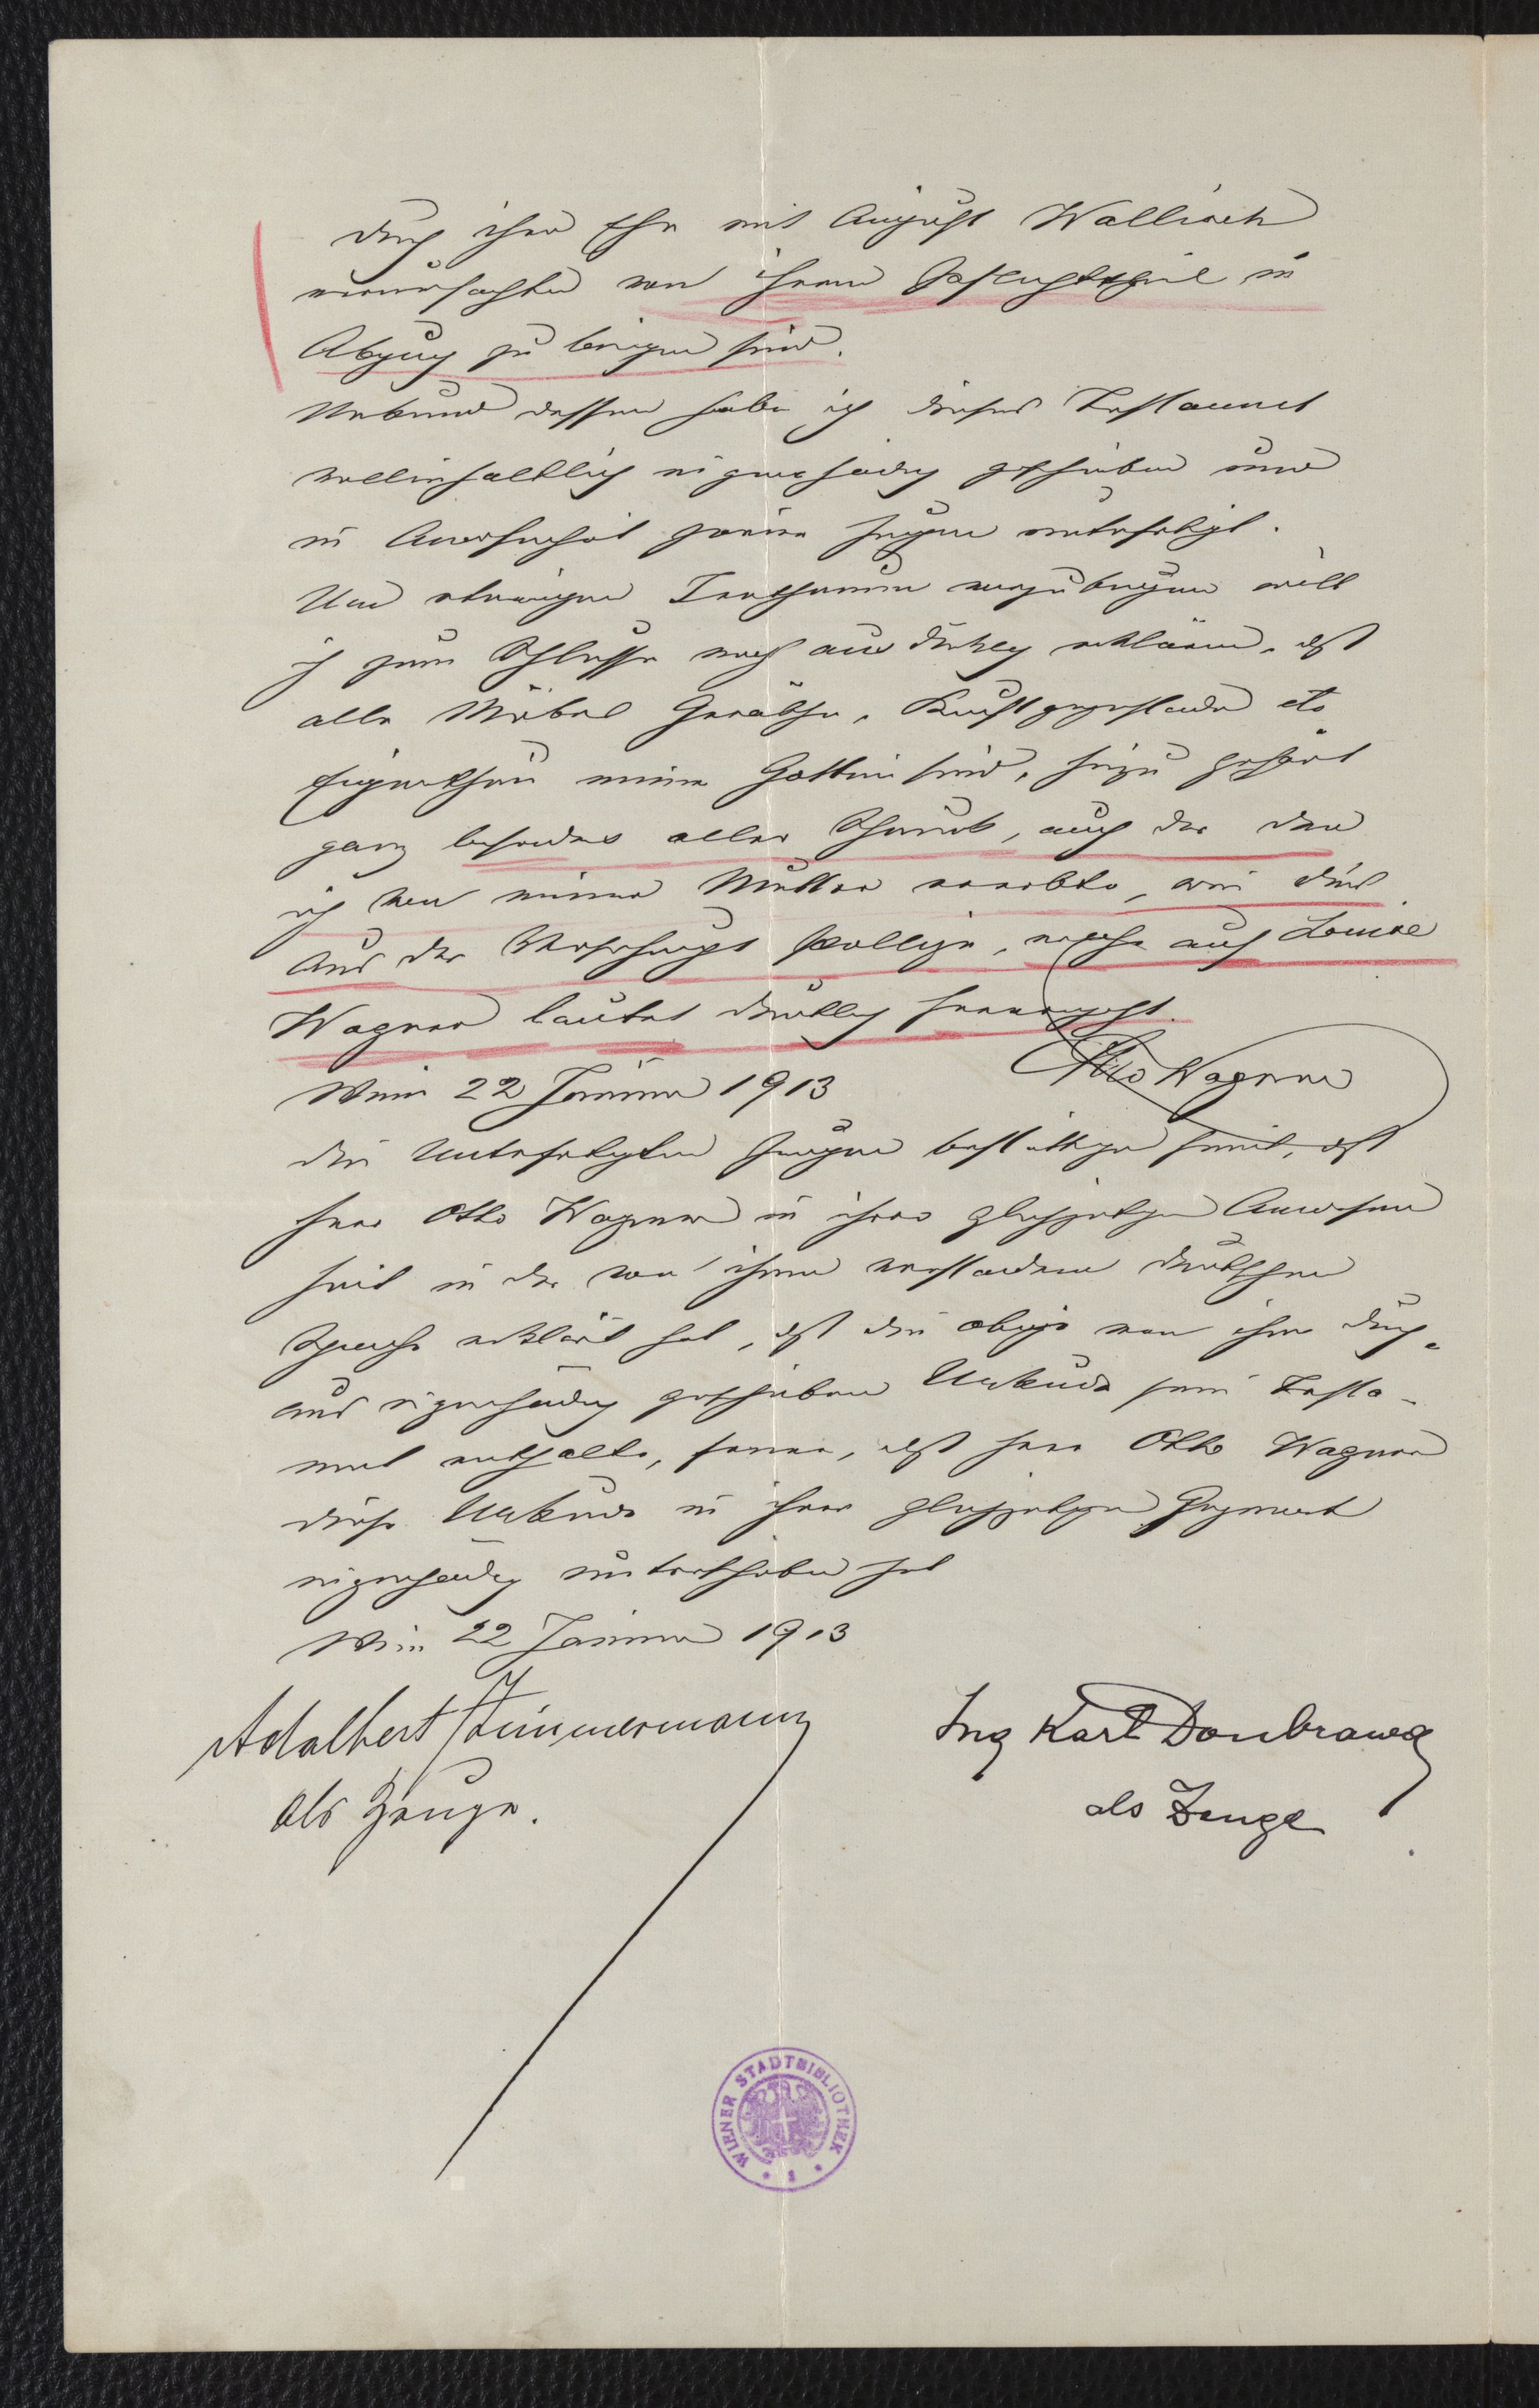 durch ihre Ehe mit August Wallisch
verursachten von ihrem Pflichttheil in
Abzug zu bringen sind.
Urkund dessen habe ich dieses Testament
vollinhaltlich eigenhändig geschrieben und
in Anwesenheit zweier Zeugen unterfertigt.
Um etwaigen Irrthümern vorzubeugen will
ich zum Schlusse noch ausdrücklich erklären, dß
alle Möbel Geräthe, Kunstgegenstände etc
Eigenthum meiner Gattin sind, hiezu gehört
ganz besonders aller Schmuck, auch der den
ich von meiner Mutter ererbte, wie dies
aus der Versicherungs Polizze, welche auf Louise
Wagner lautet deutlich hervorgeht.
Wien 22 Jänner 1913 Otto Wagner
die Unterfertigten Zeugen bestättigen hiemit, dß
Herr Otto Wagner in ihrer gleichzeitigen Anwesen
heit in der von ihnen verstandenen deutschen
Sprache erklärt hat, dß die obige von ihm durch-
aus eigenhändig geschriebene Urkunde sein Testa-
ment enthalte, ferner, dß Herr Otto Wagner
diese Urkunde in ihrer gleichzeitigen Gegenwart
eigenhändig unterschrieben hat
Wien 22 Jänner 1913
Adalbert Zimmermann Ing Karl Doubrawa
als Zeuge. als Zeuge
WIENER STADTBIBLIOTHEK